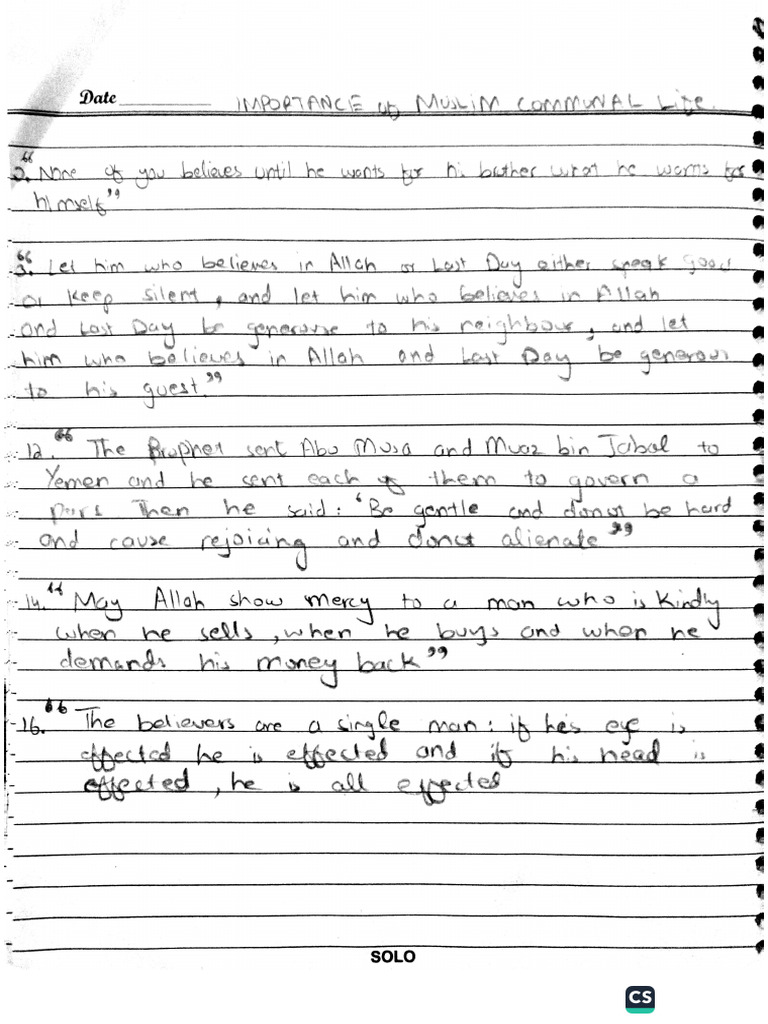 Date IMPORTANCE of MUSLIM COMMUNAL Life.
2. "None of you believes until he wants for his brother what he wants for
himself"
3. "Let him who believes in Allah or Last Day either speak good
or keep silent, and let him who believes in Allah
and Last Day be generouse to his neighbour, and let
him who believes in Allah and Last Day be generous
to his guest."
12. "The Prophet sent Abu Musa and Muaz bin Jabal to
Yemen and he sent each of them to govern a
Then he said: 'Be gentle and donot be hard
and cause rejoicing and donot alienate"
14. "May Allah show mercy to a man who is kindly
when he sells, when he buys and when he
demands his money back"
16. "The believers are a single man: if his eye is
effected he is effected and if his head is
effected, he is all effected
SOLO
CS